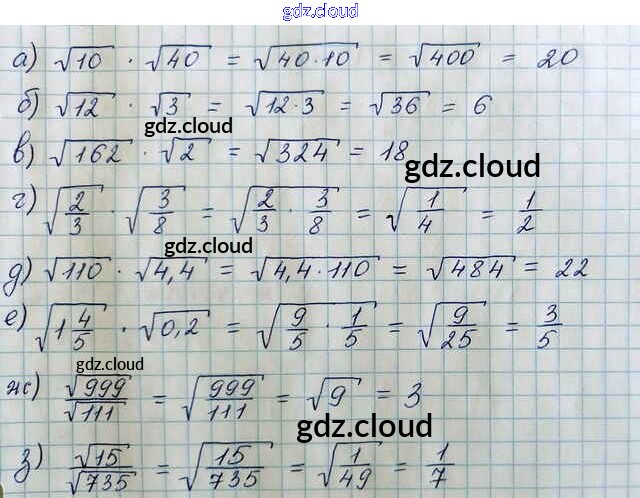 gdz.cloud
а) √10 · √40 = √40·10 = √400 = 20
б) √12 · √3 = √12·3 = √36 = 6
gdz.cloud
в) √162 · √2 = √324 = 18
gdz.cloud
г) √2/3 · √3/8 = √2/3 · 3/8 = √1/4 = 1/2
gdz.cloud
д) √110 · √4,4 = √4,4·110 = √484 = 22
е) √1 4/5 · √0,2 = √9/5 · 1/5 = √9/25 = 3/5
gdz.cloud
ж) √999/√111 = √999/111 = √9 = 3
gdz.cloud
з) √15/√735 = √15/735 = √1/49 = 1/7